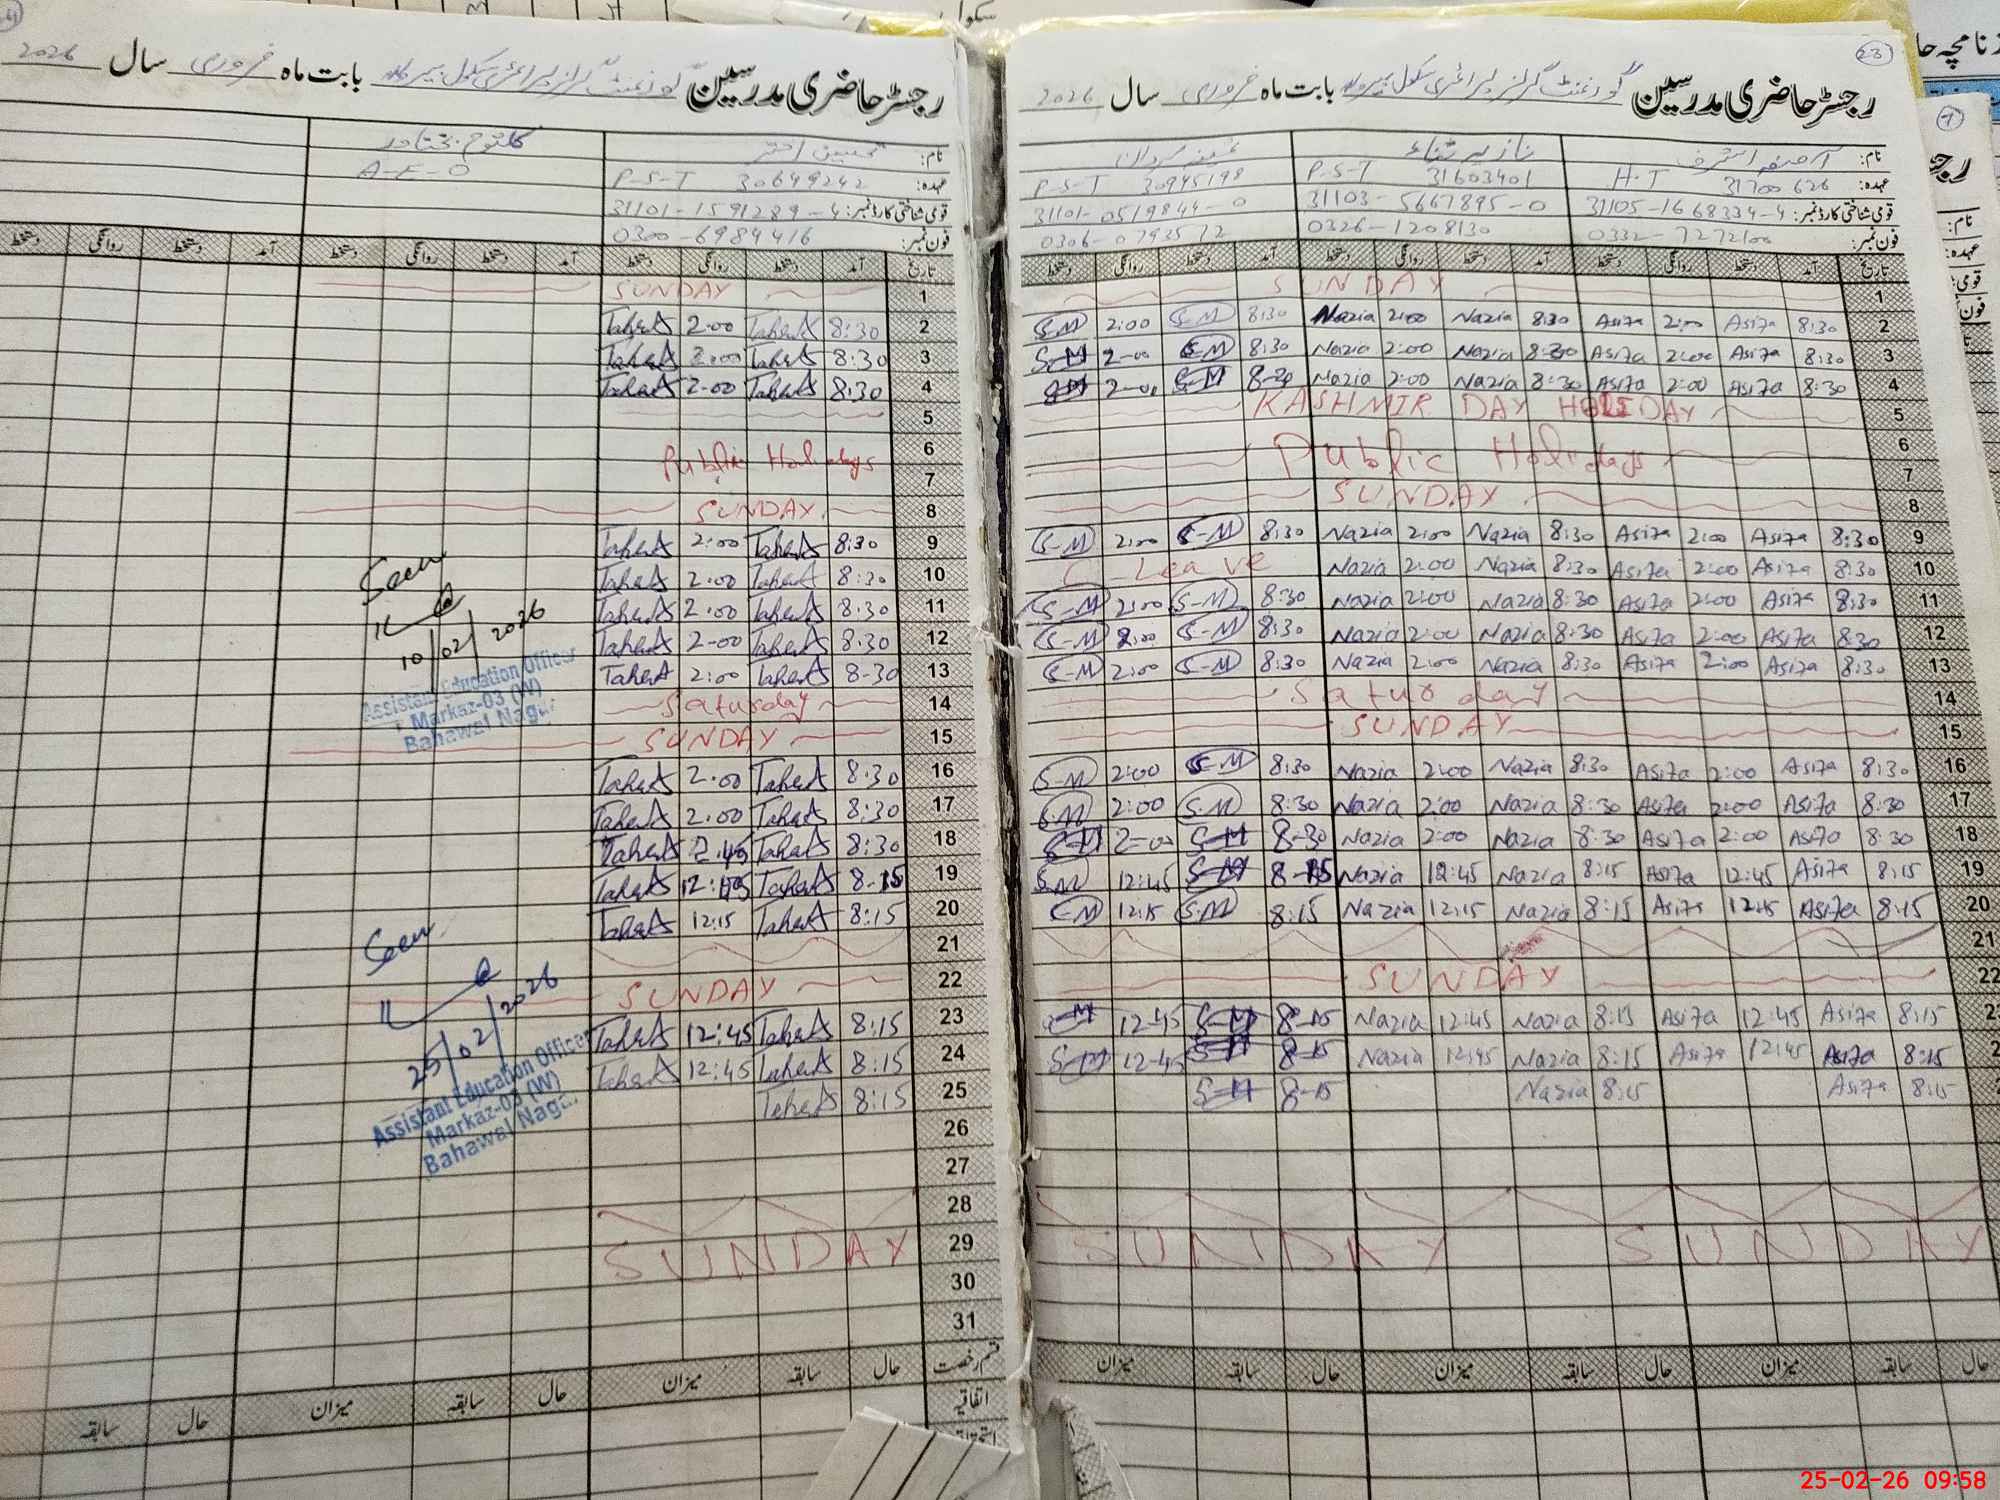 رجسٹر حاضری مدرسین گورنمنٹ گرلز پرائمری سکول بابت ماہ فروری سال 2026
23
نام: آصفہ اشرف نازیہ ثناء
عہدہ: H.T 31700626 P-S-T 31603401 P-S-T 30945198
قومی شناختی کارڈ نمبر: 31105-1668334-4 31103-5667895-0 31101-0519844-0
فون نمبر: 0332-7272100 0326-1208130 0306-0793572
تاریخ آمد دستخط روانگی دستخط آمد دستخط روانگی دستخط آمد دستخط روانگی دستخط
1 SUNDAY
2 8:30 Asifa 2:00 Asifa 8:30 Nazia 2:00 Nazia 8:30 S-M 2:00 S-M
3 8:30 Asifa 2:00 Asifa 8:30 Nazia 2:00 Nazia 8:30 S-M 2-00 S-M
4 8:30 Asifa 2:00 Asifa 8:30 Nazia 2:00 Nazia 8-30 S-M 2-00 S-M
5 KASHMIR DAY HOLIDAY
6 Public Holidays
7
8 SUNDAY
9 8:30 Asifa 2:00 Asifa 8:30 Nazia 2:00 Nazia 8:30 S-M 2:00 S-M
10 8:30 Asifa 2:00 Asifa 8:30 Nazia 2:00 Nazia C-Leave
11 8:30 Asifa 2:00 Asifa 8:30 Nazia 2:00 Nazia 8:30 S-M 2:00 S-M
12 8:30 Asifa 2:00 Asifa 8:30 Nazia 2:00 Nazia 8:30 S-M 2:00 S-M
13 8:30 Asifa 2:00 Asifa 8:30 Nazia 2:00 Nazia 8:30 S-M 2:00 S-M
14 Saturday
15 SUNDAY
16 8:30 Asifa 2:00 Asifa 8:30 Nazia 2:00 Nazia 8:30 S-M 2:00 S-M
17 8:30 Asifa 2:00 Asifa 8:30 Nazia 2:00 Nazia 8:30 S-M 2:00 S-M
18 8:30 Asifa 2:00 Asifa 8:30 Nazia 2:00 Nazia 8-30 S-M 2-00 S-M
19 8:15 Asifa 12:45 Asifa 8:15 Nazia 12:45 Nazia 8-15 S-M 12:45 S-M
20 8:15 Asifa 12:15 Asifa 8:15 Nazia 12:15 Nazia 8:15 S-M 12:15 S-M
21
22 SUNDAY
8:15 Asifa 12:45 Asifa 8:15 Nazia 12:45 Nazia 8-15 S-M 12-45 S-M
8:15 Asifa 12:45 Asifa 8:15 Nazia 12:45 Nazia 8-15 S-M 12-45 S-M
8:15 Asifa 8:15 Nazia 8-15 S-M
SUNDAY SUNDAY
حال سابقہ میزان حال سابقہ میزان حال سابقہ میزان
رجسٹر حاضری مدرسین گورنمنٹ گرلز پرائمری سکول بابت ماہ فروری سال 2026
نام: اختر کلثوم بختاور
عہدہ: P-S-T 30649242 A-E-O
قومی شناختی کارڈ نمبر: 31101-1591289-4
فون نمبر: 0300-6984416
تاریخ آمد دستخط روانگی دستخط آمد دستخط روانگی دستخط آمد دستخط روانگی دستخط
1 SUNDAY
2 8:30 TaherA 2:00 TaherA
3 8:30 TaherA 2:00 TaherA
4 8:30 TaherA 2-00 TaherA
5
6 Public Holidays
7
8 SUNDAY
9 8:30 TaherA 2:00 TaherA
10 8:30 TaherA 2:00 TaherA
11 8:30 TaherA 2:00 TaherA
12 8:30 TaherA 2-00 TaherA
13 8-30 TaherA 2:00 TaherA
14 Saturday
15 SUNDAY
16 8:30 TaherA 2:00 TaherA
17 8:30 TaherA 2:00 TaherA
18 8:30 TaherA 2:45 TaherA
19 8-15 TaherA 12:45 TaherA
20 8:15 TaherA 12:15 TaherA
21
22 SUNDAY
23 8:15 TaherA 12:45 TaherA
24 8:15 TaherA 12:45 TaherA
25 8:15 TaherA
26
27
28
29 SUNDAY
30
31
قسم رخصت حال سابقہ میزان حال سابقہ میزان حال سابقہ
اتفاقیہ
Seen
10/02/2026
Assistant Education Officer
Markaz-03 (W)
Bahawal Nagar
Seen
25/02/2026
Assistant Education Officer
Markaz-03 (W)
Bahawal Nagar
25-02-26 09:58